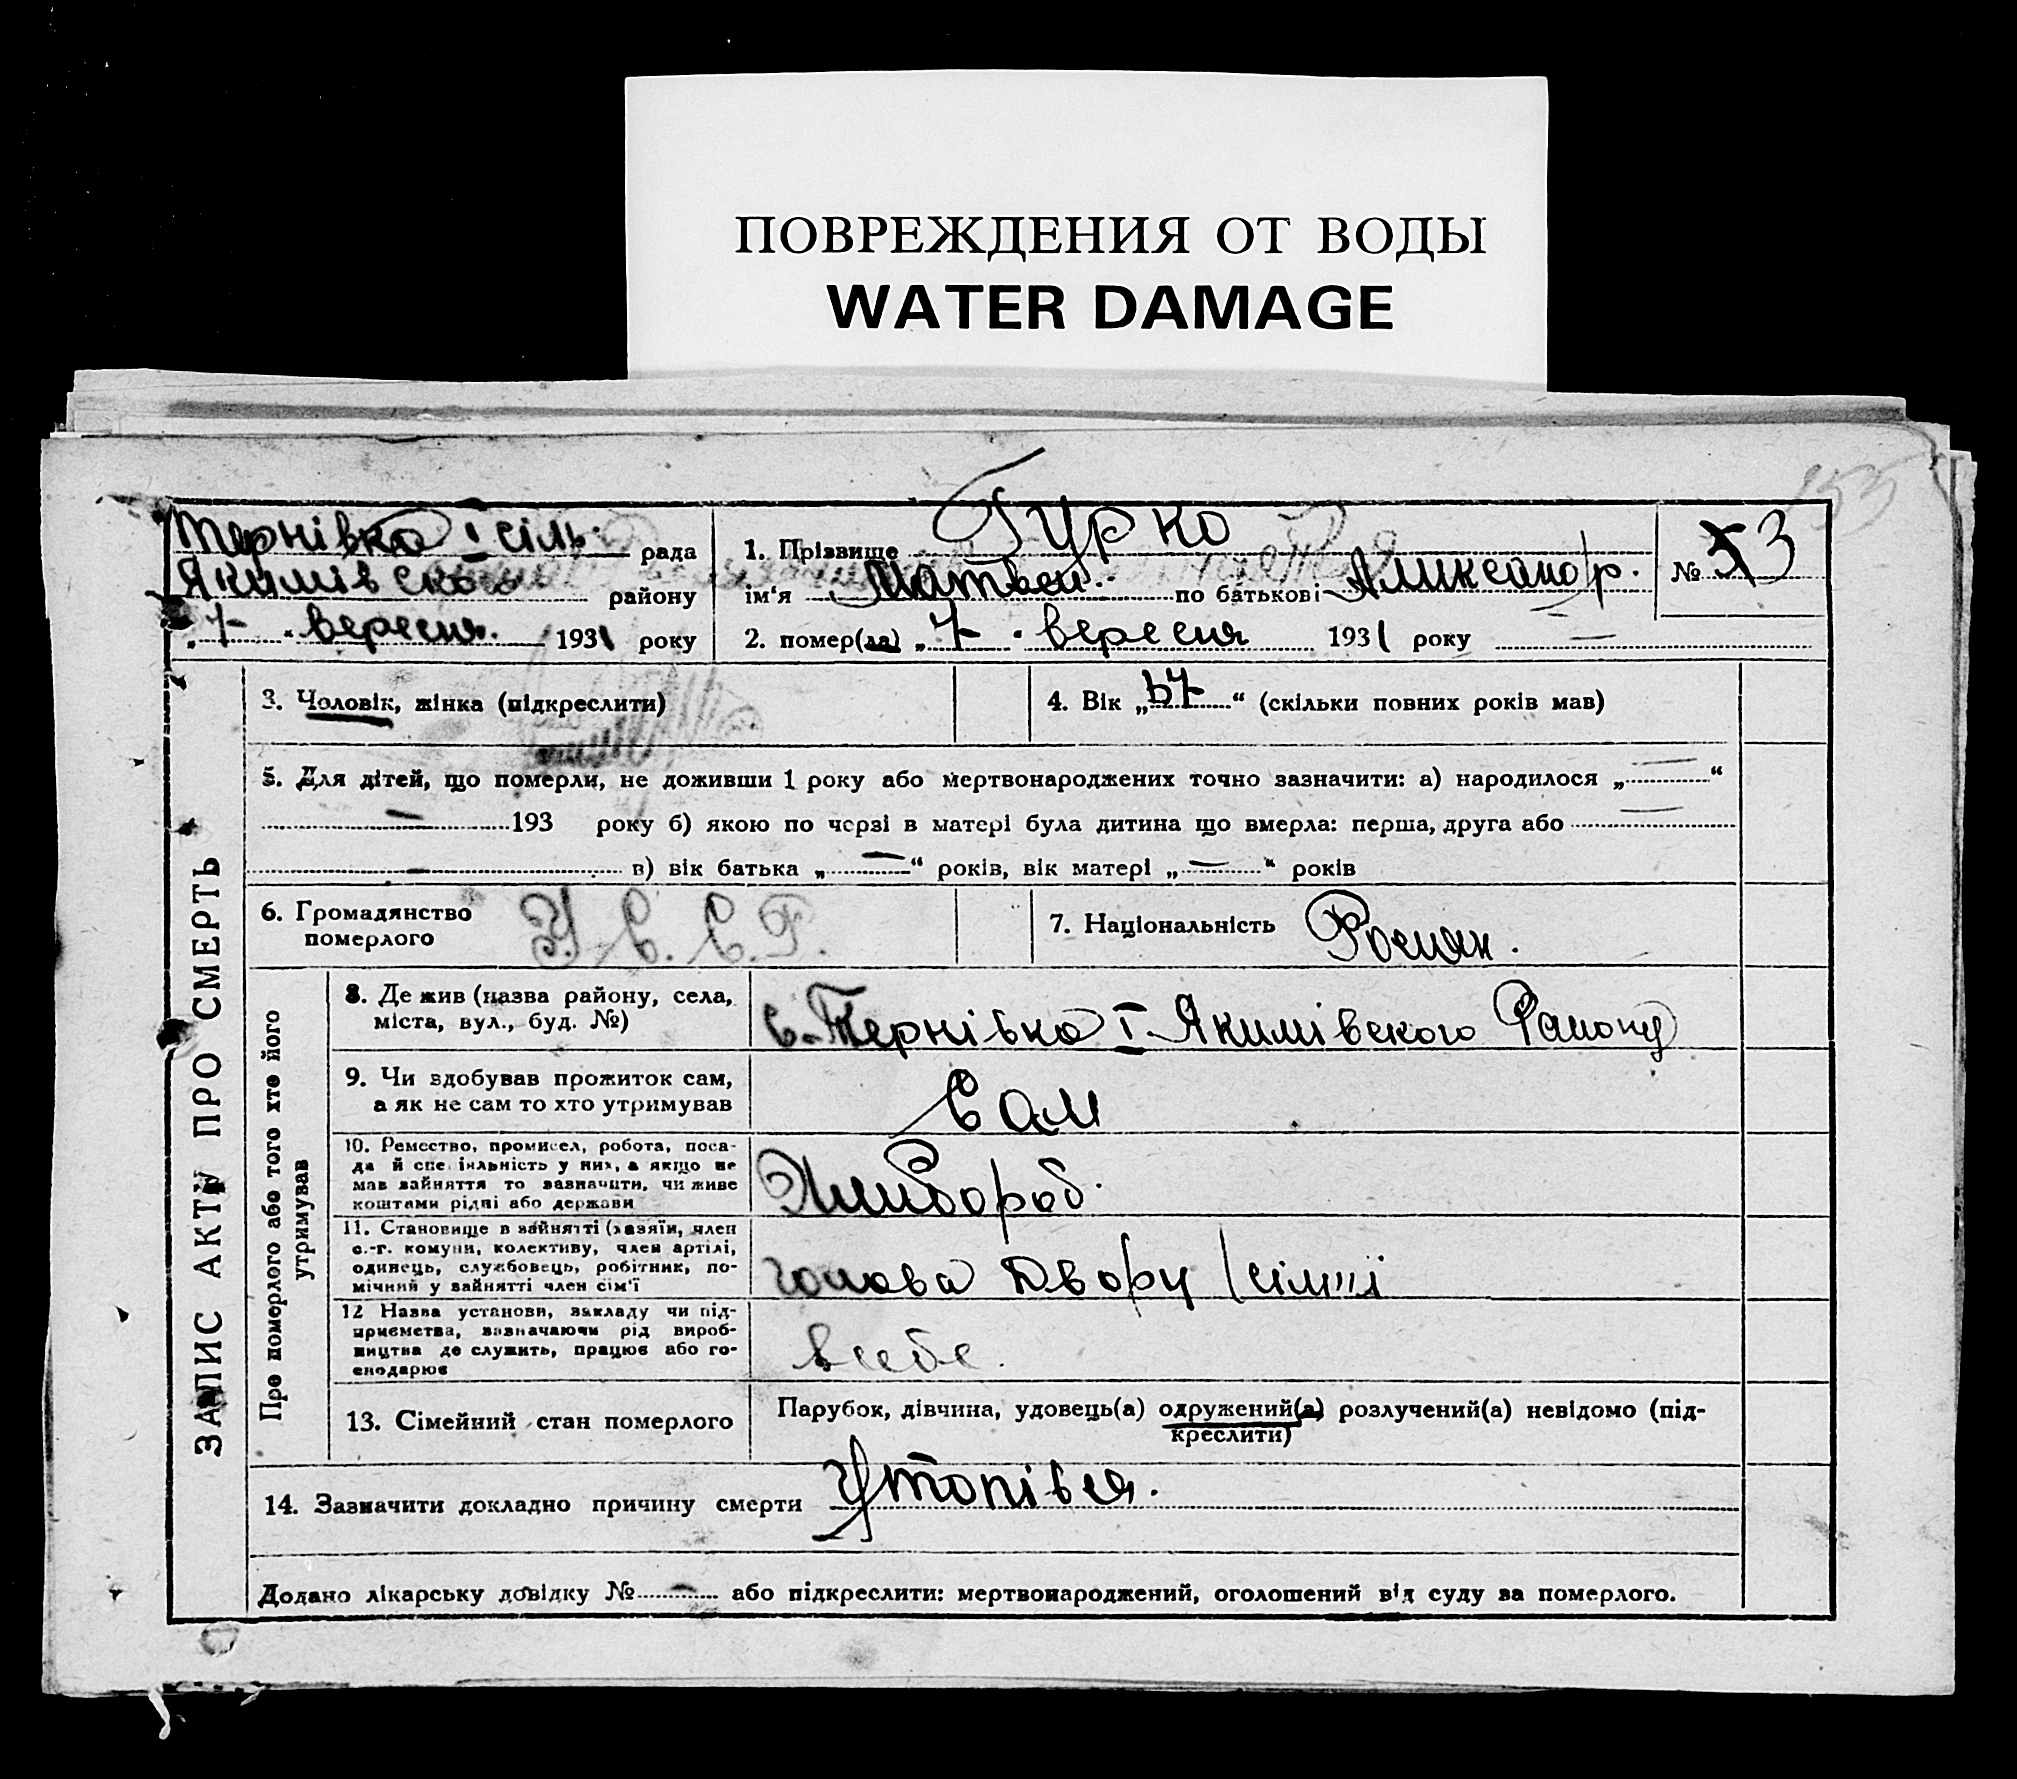 ПОВРЕЖДЕНИЯ ОТ ВОДЫ
WATER DAMAGE
ЗАПИС АКТУ ПРО СМЕРТЬ
Тернівка I сіль. рада
Якимівско району
„7“ вересня. 1931 року
1. Прізвище Гурко
ім'я Матвеи по батькові Аликсандр.
2. помер(ла) „7“ вересня 1931 року —
№ 53
3. Чоловік, жінка (підкреслити)
4. Вік „57“ (скільки повних років мав)
5. Для дітей, що померли, не доживши 1 року або мертвонароджених точно зазначити: а) народилося „—“
— 193 року б) якою по черзі в матері була дитина що вмерла: перша, друга або —
— в) вік батька „—“ років, вік матері „—“ років
6. Громадянство
померлого
У.С.С.Р.
7. Національність Росиян.
Про померлого або того хто його
утримував
8. Де жив (назва району, села,
міста, вул., буд. №)
с. Тернівка I Якимівского Району
9. Чи здобував прожиток сам,
а як не сам то хто утримував
Сам
10. Ремество, промисел, робота, поса-
да й спеціяльність у них, а якщо не
мав зайняття то зазначити, чи живе
коштами рідні або держави
Хлибороб.
11. Становище в зайнятті (хазяїн, член
с.-г. комуни, колективу, член артілі,
одинець, службовець, робітник, по-
мічний у зайнятті член сім'ї
голова Двору
12 Назва установи, закладу чи під-
приємства, зазначаючи рід вироб-
ництва де служить, працює або го-
сподарює
в себе.
13. Сімейний стан померлого
Парубок, дівчина, удовець(а) одружений(а) розлучений(а) невідомо (під-
креслити)
14. Зазначити докладно причину смерти Утопівся.
Додано лікарську довідку № — або підкреслити: мертвонароджений, оголошений від суду за померлого.